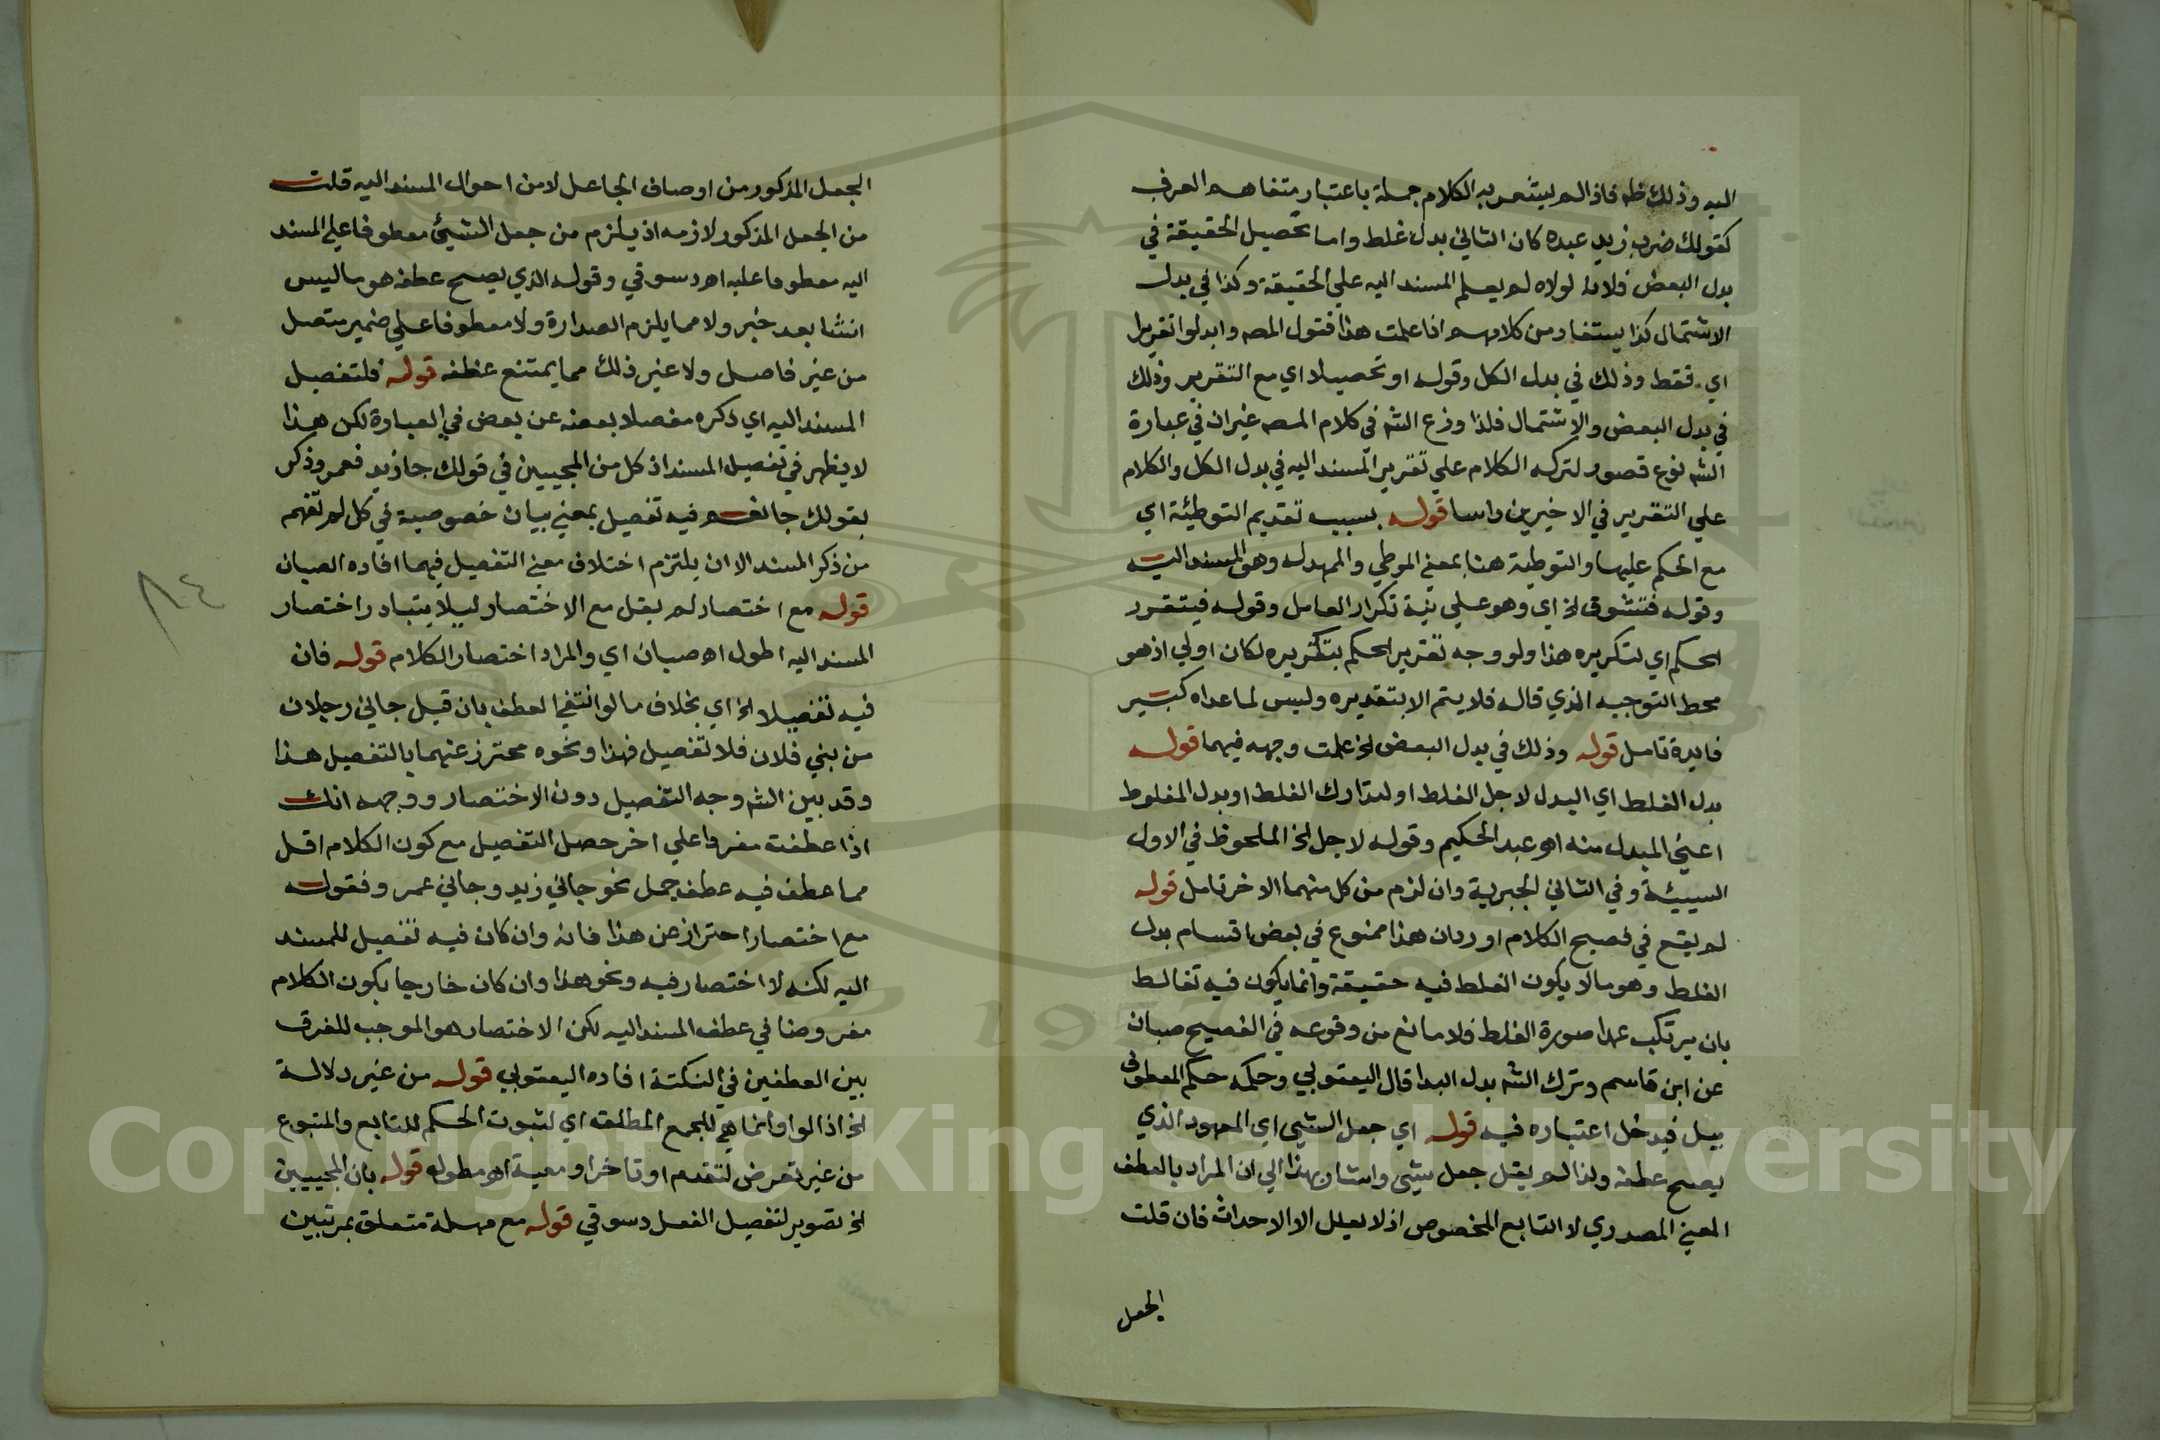 اليه وذلك ظه فاذا لم يشعر به الكلام جملة باعتبار متفاهم العرف
كقولك ضرب زيد عبده كان الثاني بدل غلط واما تحصيل الحقيقة في
بدل البعض فلانه لولاه لم يعلم المسند اليه علي الحقيقة وكذا في بدل
الاشتمال كذا يستفاد من كلامهم اذا علمت هذا فقول المصه وابدلوا تقريرا
اي فقط وذلك في بدل الكل وقوله او تحصيلا اي مع التقرير وذلك
في بدل البعض والاشتمال فلذا وزع الشه في كلام المصه غيران في عبارة
الشه نوع قصور لتركه الكلام علي تقرير المسند اليه في بدل الكل والكلام
علي التقرير في الاخيرين راسا قوله بسبب تقديم التوطئة اي
مع الحكم عليها والتوطية هنا بمعني الموطي والممهد له وهو المسند اليه
وقوله فتشوق لخ اي وهو علي نية تكرار العامل وقوله فيتقرر
الحكم اي لتكريره هذا ولو وجه تقرير الحكم بتكريره لكان اولي اذ هو
محط التوجيه الذي قاله فلا يتم الا بتقديره وليس لما عداه كبير
فايدة تامل قوله وذلك في بدل البعض لخ علمت وجهه فيهما قوله
بدل الغلط اي البدل لاجل الغلط او لتدارك الغلط او بدل المغلوط
اعني المبدل منه اهو عبد الحكيم وقوله لاجل لخ الملحوظ في الاول
السيبية وفي الثاني الجبرية وان لزم من كل منهما الاخر تامل قوله
لم يقع في فصيح الكلام اورد ان هذا ممنوع في بعض اقسام بدل
الغلط وهو مالا يكون الغلط فيه حقيقة وانما يكون فيه تغالط
بان يرتكب عمدا صورة الغلط فلا مانع من وقوعه في الفصيح صبان
عن ابن قاسم وترك الشه بدل البدا قال اليعقوبي وحكمه حكم المعطوف
ببل فيدخل اعتباره فيه قوله اي جعل الشيي اي المعهود الذي
يصح عطفه ولذا لم يقل جعل شيي واشار بهذا الي ان المراد بالعطف
المعني المصدري لا التابع المخصوص اذ لا يعلل الا الاحداث فان قلت
الجعل
الجعل المذكور من اوصاف الجاعل لا من احوال المسند اليه قلت
من الجعل المذكور لازمه اذ يلزم من جعل الشيئ معطوفا علي المسند
اليه معطوفا عليه اهـ دسوقي وقوله الذي يصح عطفه هو ما ليس
انشا بعد خبر ولا مما يلزم الصدارة ولا معطوفا علي ضمير متصل
من غير فاصل ولا غير ذلك مما يمتنع عطفه قوله فلتفصيل
المسند اليه اي ذكره مفصلا بعضه عن بعض في العبارة لكن هذا
لا يظهر في تفصيل المسند اذ كل من المجييين في قولك جا زيد فعمرو ذكر
بقولك جا نعم فيه تفصيل بمعني بيان خصوصية في كل لم تفهم
من ذكر المسند الا ان يلتزم اختلاف معني التفصيل فيهما افاده الصبان
قوله مع اختصار لم يقل مع الاختصار ليلا يتبادر اختصار
المسند اليه اطول اهـ صبان اي والمراد اختصار الكلام قوله فان
فيه تفصيلا لخ اي بخلاف ما لو انتفي العطف بان قيل جاني رجلان
من بني فلان فلا تفصيل فهذا ونحوه محترز عنهما بالتفصيل هذا
وقد بين الشه وجه التفصيل دون الاختصار ووجهه انك
اذا عطفت مفردا علي اخر حصل التفصيل مع كون الكلام اقل
مما عطف فيه عطف جمل نحو جاني زيد وجاني عمرو فقوله
مع اختصار احتراز عن هذا فانه وان كان فيه تفصيل للمسند
اليه لكنه لا اختصار فيه ونحو هذا وان كان خارجا بكون الكلام
مفروضا في عطف المسند اليه لكن الاختصار هو الموجب للفرق
بين العطفين في النكتة افاده اليعقوبي قوله من غير دلالة
لخ اذ الواو انما هي للجمع المطلق اي لثبوت الحكم للتابع والمتبوع
من غير تعرض لتقدم او تاخر او معية اهو مطوله قوله بان المجييين
لخ تصوير لتفصيل الفعل دسوقي قوله مع مهملة متعلق بمرتبين
٨٤
Copyright © King Saud University
1957